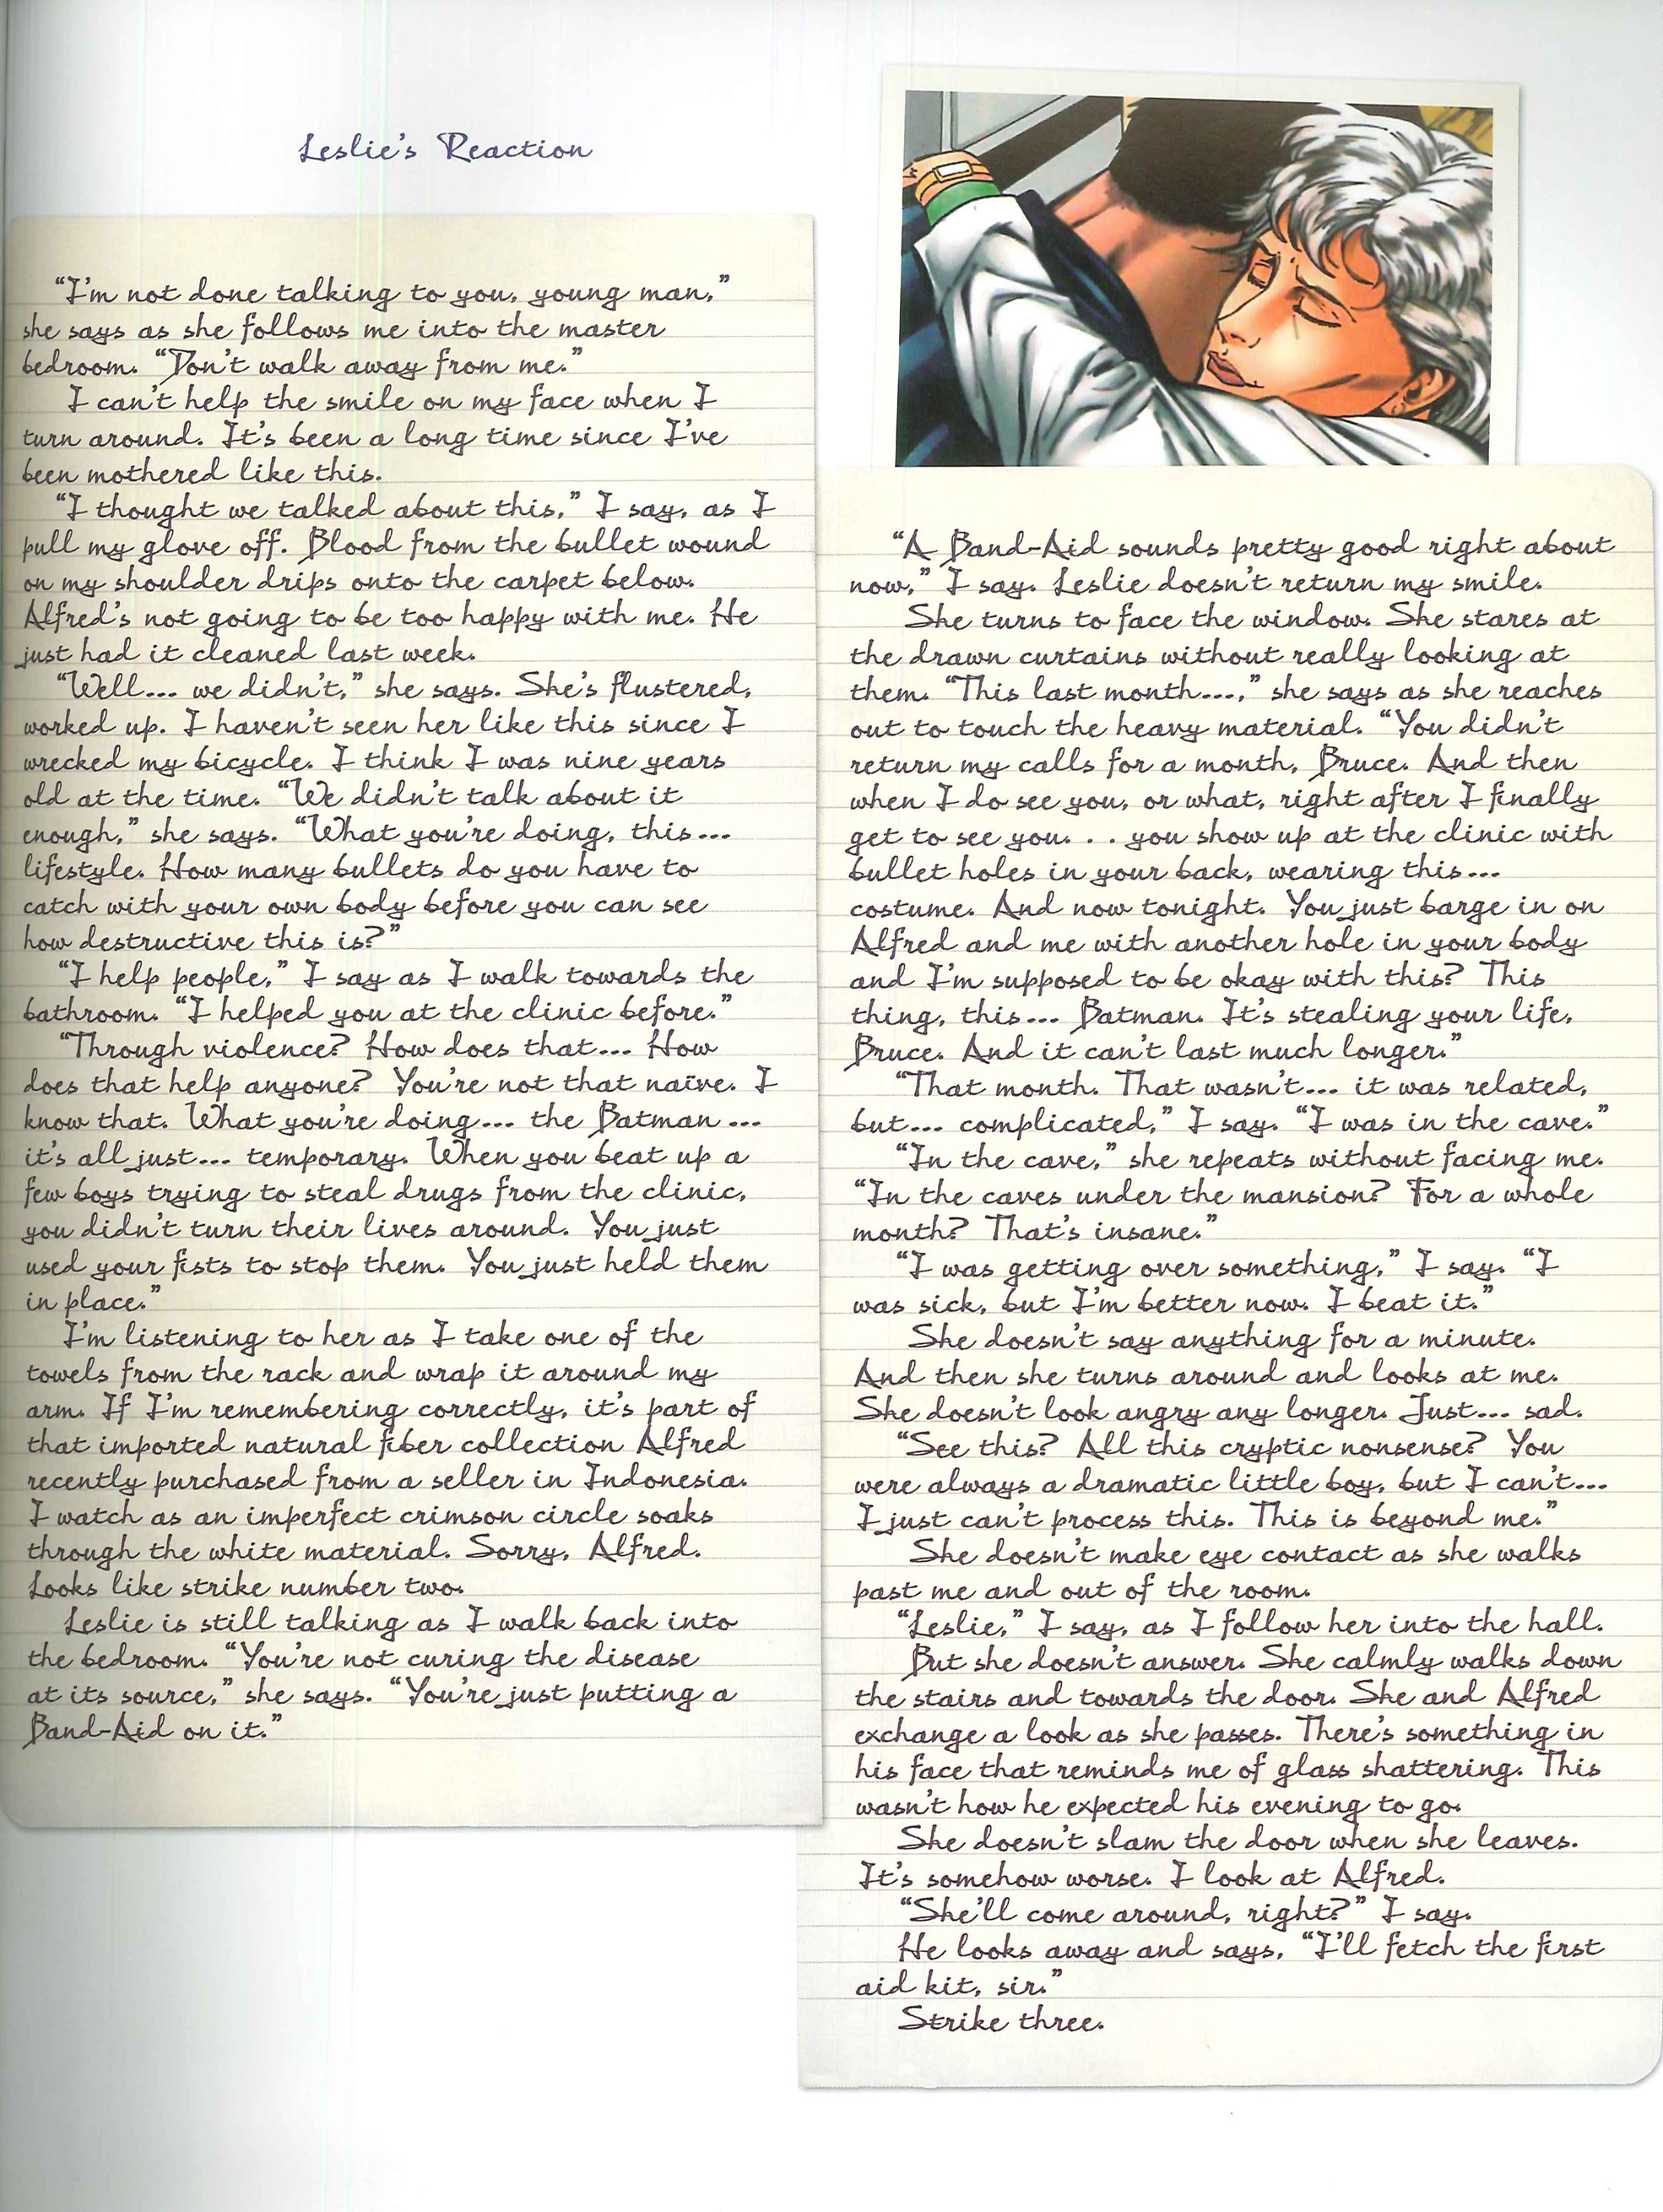 Leslie's Reaction
"I'm not done talking to you, young man,"
she says as she follows me into the master
bedroom. "Don't walk away from me."
I can't help the smile on my face when I
turn around. It's been a long time since I've
been mothered like this.
"I thought we talked about this," I say, as I
pull my glove off. Blood from the bullet wound
on my shoulder drips onto the carpet below.
Alfred's not going to be too happy with me. He
just had it cleaned last week.
"Well... we didn't," she says. She's flustered,
worked up. I haven't seen her like this since I
wrecked my bicycle. I think I was nine years
old at the time. "We didn't talk about it
enough," she says. "What you're doing, this...
lifestyle. How many bullets do you have to
catch with your own body before you can see
how destructive this is?"
"I help people," I say as I walk towards the
bathroom. "I helped you at the clinic before."
"Through violence? How does that... How
does that help anyone? You're not that naïve. I
know that. What you're doing... the Batman...
it's all just... temporary. When you beat up a
few boys trying to steal drugs from the clinic,
you didn't turn their lives around. You just
used your fists to stop them. You just held them
in place."
I'm listening to her as I take one of the
towels from the rack and wrap it around my
arm. If I'm remembering correctly, it's part of
that imported natural fiber collection Alfred
recently purchased from a seller in Indonesia.
I watch as an imperfect crimson circle soaks
through the white material. Sorry, Alfred.
Looks like strike number two.
Leslie is still talking as I walk back into
the bedroom. "You're not curing the disease
at its source," she says. "You're just putting a
Band-Aid on it."
"A Band-Aid sounds pretty good right about
now," I say. Leslie doesn't return my smile.
She turns to face the window. She stares at
the drawn curtains without really looking at
them. "This last month...," she says as she reaches
out to touch the heavy material. "You didn't
return my calls for a month, Bruce. And then
when I do see you, or what, right after I finally
get to see you. . . you show up at the clinic with
bullet holes in your back, wearing this...
costume. And now tonight. You just barge in on
Alfred and me with another hole in your body
and I'm supposed to be okay with this? This
thing, this... Batman. It's stealing your life,
Bruce. And it can't last much longer."
"That month. That wasn't... it was related,
but... complicated," I say. "I was in the cave."
"In the cave," she repeats without facing me.
"In the caves under the mansion? For a whole
month? That's insane."
"I was getting over something," I say. "I
was sick, but I'm better now. I beat it."
She doesn't say anything for a minute.
And then she turns around and looks at me.
She doesn't look angry any longer. Just... sad.
"See this? All this cryptic nonsense? You
were always a dramatic little boy, but I can't...
I just can't process this. This is beyond me."
She doesn't make eye contact as she walks
past me and out of the room.
"Leslie," I say, as I follow her into the hall.
But she doesn't answer. She calmly walks down
the stairs and towards the door. She and Alfred
exchange a look as she passes. There's something in
his face that reminds me of glass shattering. This
wasn't how he expected his evening to go.
She doesn't slam the door when she leaves.
It's somehow worse. I look at Alfred.
"She'll come around, right?" I say.
He looks away and says, "I'll fetch the first
aid kit, sir."
Strike three.